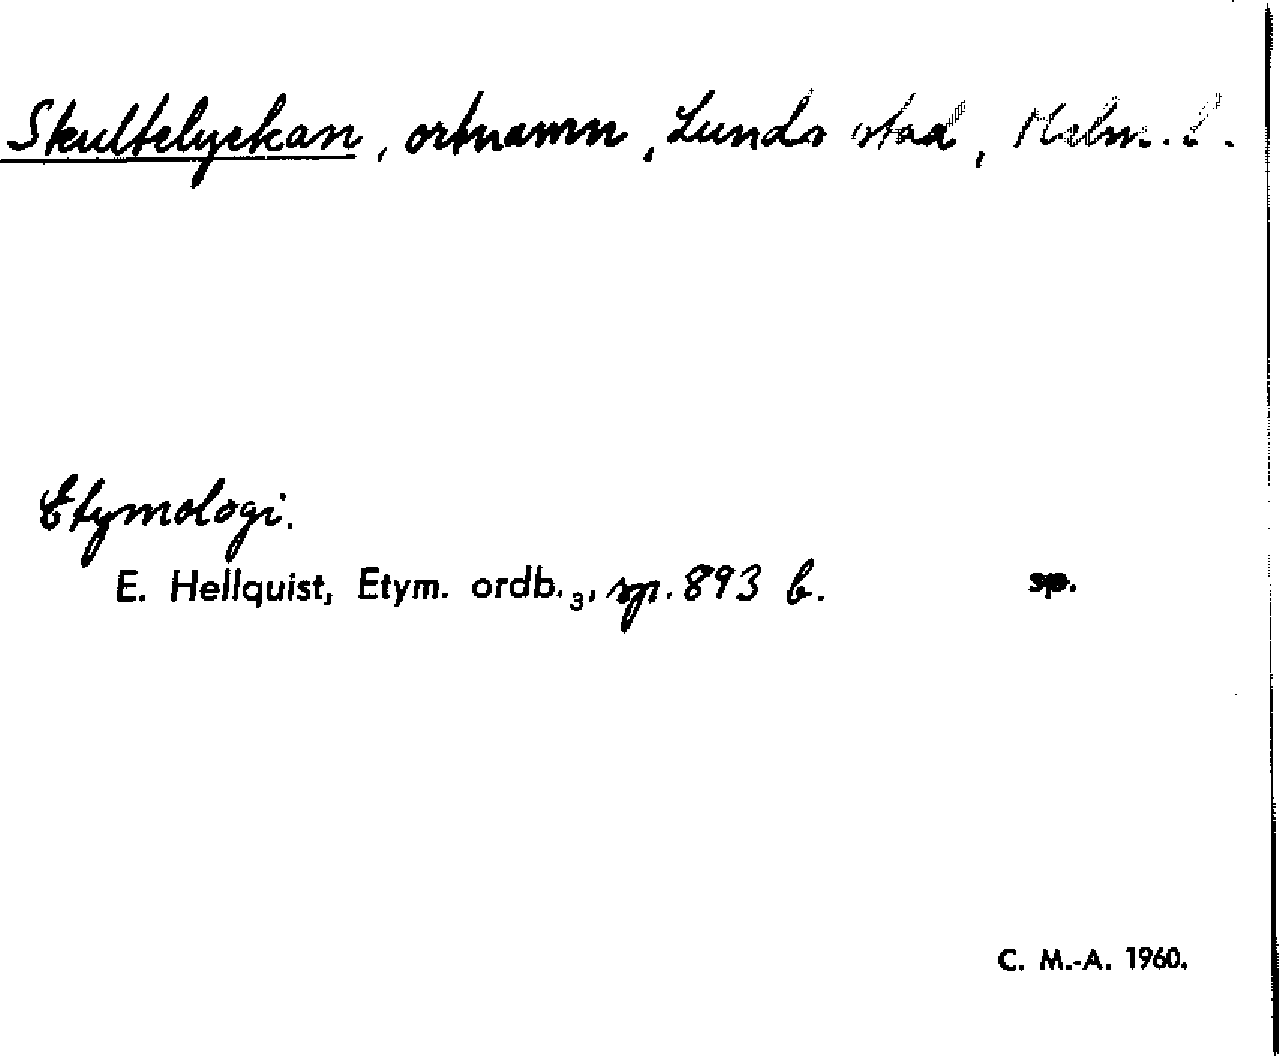 Skultelyckan, ortnamn, Lunds stad, Malm. l.
Etymologi.
E. Hellquist, Etym. ordb.₃, sp. 893 b. sp.
C. M.-A. 1960.